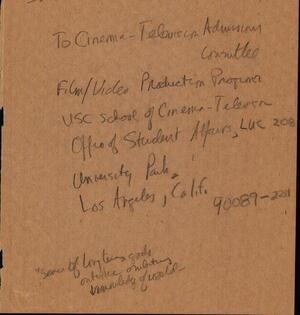 To Cinema-Television Admissions
Committee
Film/Video Production Program
USC School of Cinema-Television
Office of Student Affairs, LUC 208
University Park
Los Angeles, Calif.
90089-2211
sense of long term goals
knowledge of world